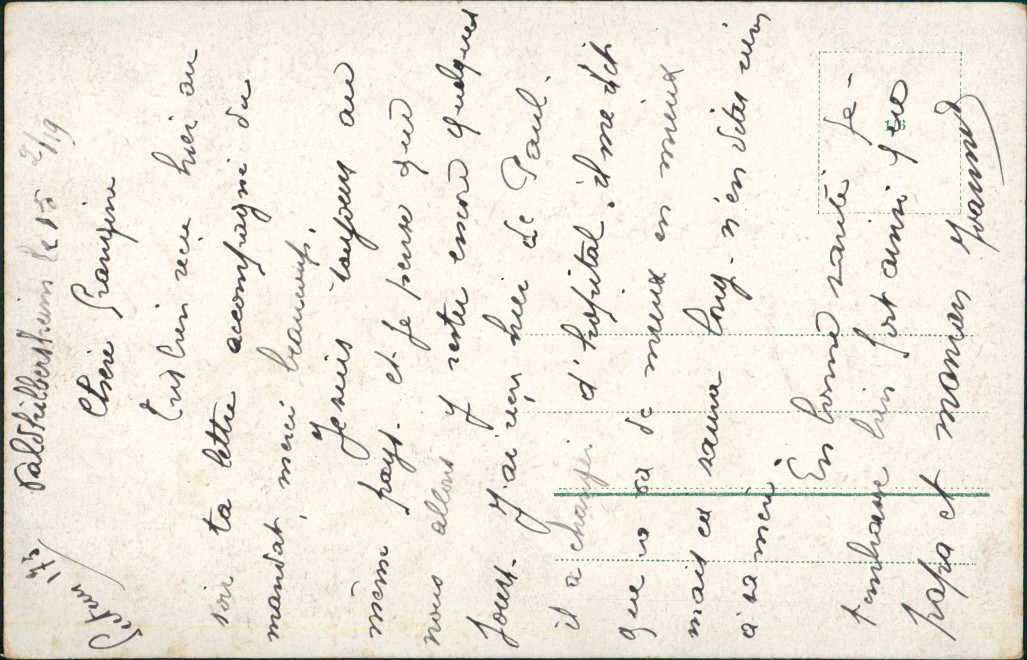 Waldhilbersheim le 15 2/19
Chère Françine
J'ai bien reçu hier au
soir ta lettre accompagné du
mandat, merci beaucoup.
Je suis toujours au
même pays. et je pense que
nous allons y rester encore quelques
Jours. J'ai reçu hier de Paul.
il a changer d'hopital. il me dit
que va de mieux en mieux
mais ça saura long. n'en dites rien
à sa mère
En bonne santé Je
t'embrasse bien fort ainsi que
papa et maman